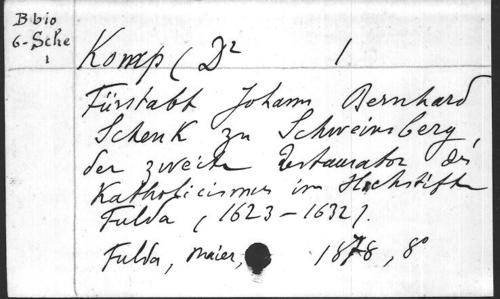 B bio
6-Sche
1
Komp ( Dr 1
Fürstabt Johann Bernhard
Schenk zu Schweinsberg,
der zweite Restaurator des
Katholicismus im Hochstifte
Fulda (1623-1632).
Fulda, Maier, 1878, 8°